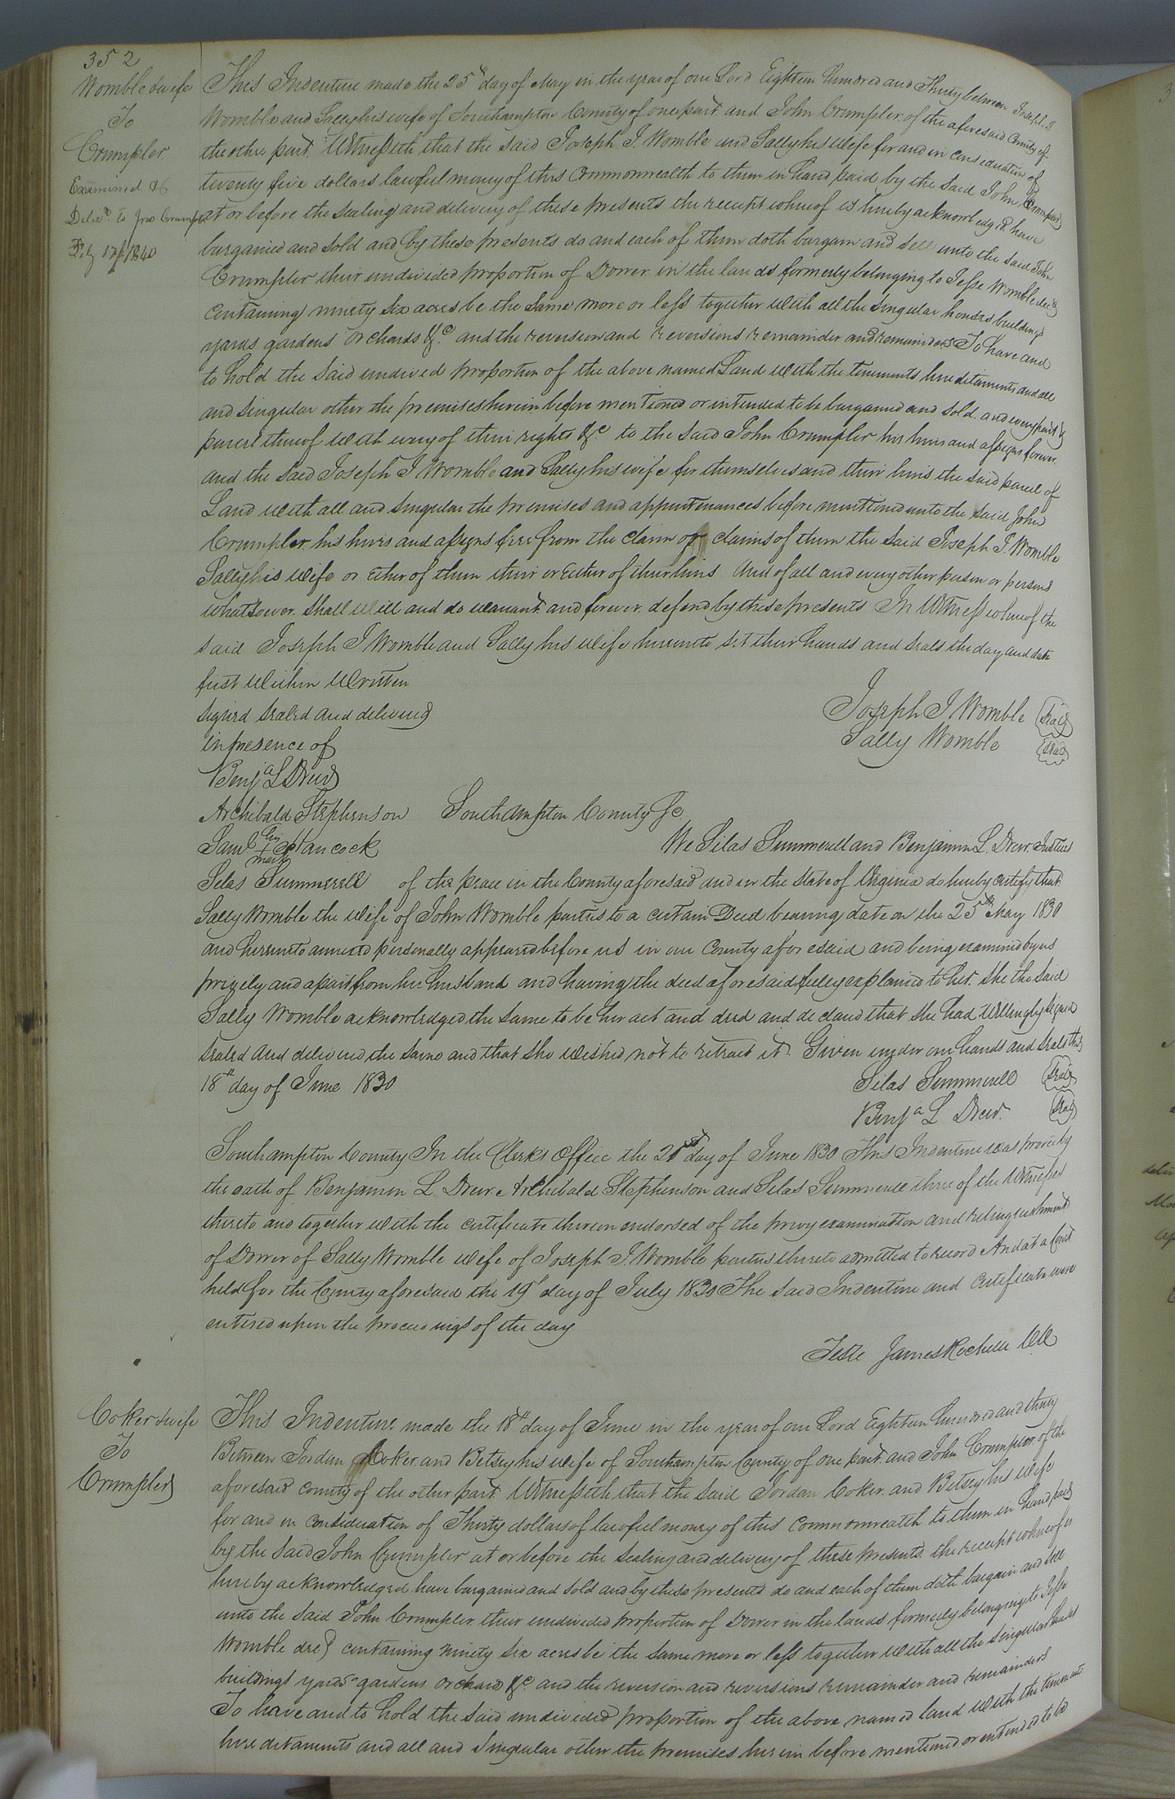 352
Womble & wife
To
Crumpler
Examined &
Delivd to Jno Crumpler
Feby 17th 1840
This Indenture made the 25th day of May in the year of our Lord Eighteen hundred and Thirty between Joseph J
Womble and Sally his wife of Southampton County of one part and John Crumpler of the aforesaid County of
the other part Witnesseth that the said Joseph J. Womble and Sally his wife for and in consideration of
twenty five dollars lawful money of this Commonwealth to them in hand paid by the said John Crumpler
at or before the sealing and delivery of these presents the receipt whereof is hereby acknowledged have
bargained and sold and by these presents do and each of them doth bargain and sell unto the said John
Crumpler their undivided proportion of Dower in the lands formerly belonging to Jesse Womble decd
containing ninety six acres be the same more or less together with all the singular houses buildings
yards gardens orchards &c and the reversion and reversions remainder and remainders To have and
to hold the said undived proportion of the above named Land with the tenements hereditaments and all
and singular other the premises herein before mentioned or intended to be bargained and sold and every part &
parcel thereof with every of their rights &c to the said John Crumpler his heirs and assigns forever
and the said Joseph J Womble and Sally his wife for themselves and their heirs the said parcel of
Land with all and singular the premises and appurtenances before mentioned unto the said John
Crumpler his heirs and assigns free from the claim or claims of them the said Joseph J. Womble
Sally his wife or either of them their or either of their heirs And of all and every other person or persons
whatsoever shall will and do warrant and forever defend by these presents In Witness whereof the
said Joseph J Womble and Sally his wife hereunto set their hands and seals the day and date
first within written
Signed sealed and delivered
in presence of
Joseph J Womble (Seal)
Sally Womble (Seal)
Benja L Drew
Archibald Stephenson Southampton County Sc
Saml his X mark Hancock We Silas Summerell and Benjamin L. Drew Justices
Silas Summerell of the peace in the County aforesaid and in the State of Virginia do hereby certify that
Sally Womble the wife of John Womble parties to a certain Deed bearing date on the 25th May 1830
and hereunto annexed personally appeared before us in our County aforesaid and being examined by us
privily and apart from her husband and having the deed aforesaid fully explained to her. She the said
Sally Womble acknowledged the same to be her act and deed and declared that she had willingly signed
sealed and delivered the same and that she wished not to retract it. Given under our hands and seals this
18th day of June 1830
Silas Summerell (Seal)
Benja L Drew. (Seal)
Southampton County In the Clerks Office the 21st day of June 1830 This Indenture was proved by
the oath of Benjamin L. Drew Archibald Stephenson and Silas Summerell three of the Witnesses
thereto and together with the certificate thereon endorsed of the privy examination and relinquishment
of Dower of Sally Womble wife of Joseph J. Womble parties thereto admitted to record And at a Court
held for the County aforesaid the 19th day of July 1830 The said Indenture and certificate were
entered upon the proceedings of the day
Teste James Rochelle CSC
Coker & wife
To
Crumpler
This Indenture made the 18th day of June in the year of our Lord Eighteen hundred and thirty
Between Jordan Coker and Betsey his wife of Southampton County of one part and John Crumpler of the
aforesaid county of the other part Witnesseth that the said Jordan Coker and Betsey his wife
for and in consideration of Thirty dollars of lawful money of this commonwealth to them in hand paid
by the said John Crumpler at or before the sealing and delivery of these presents the receipt whereof is
hereby acknowledged have bargained and sold and by these presents do and each of them doth bargain and sell
unto the said John Crumpler their undivided proportion of Dower in the lands formerly belonging to Jesse
Womble decd containing ninety six acres be the same more or less together with all the singular houses
buildings yards gardens orchard &c and the reversion and reversions remainder and remainders
To have and to hold the said undivided proportion of the above named land with the tenement
hereditaments and all and singular other the premises herein before mentioned or intended to be